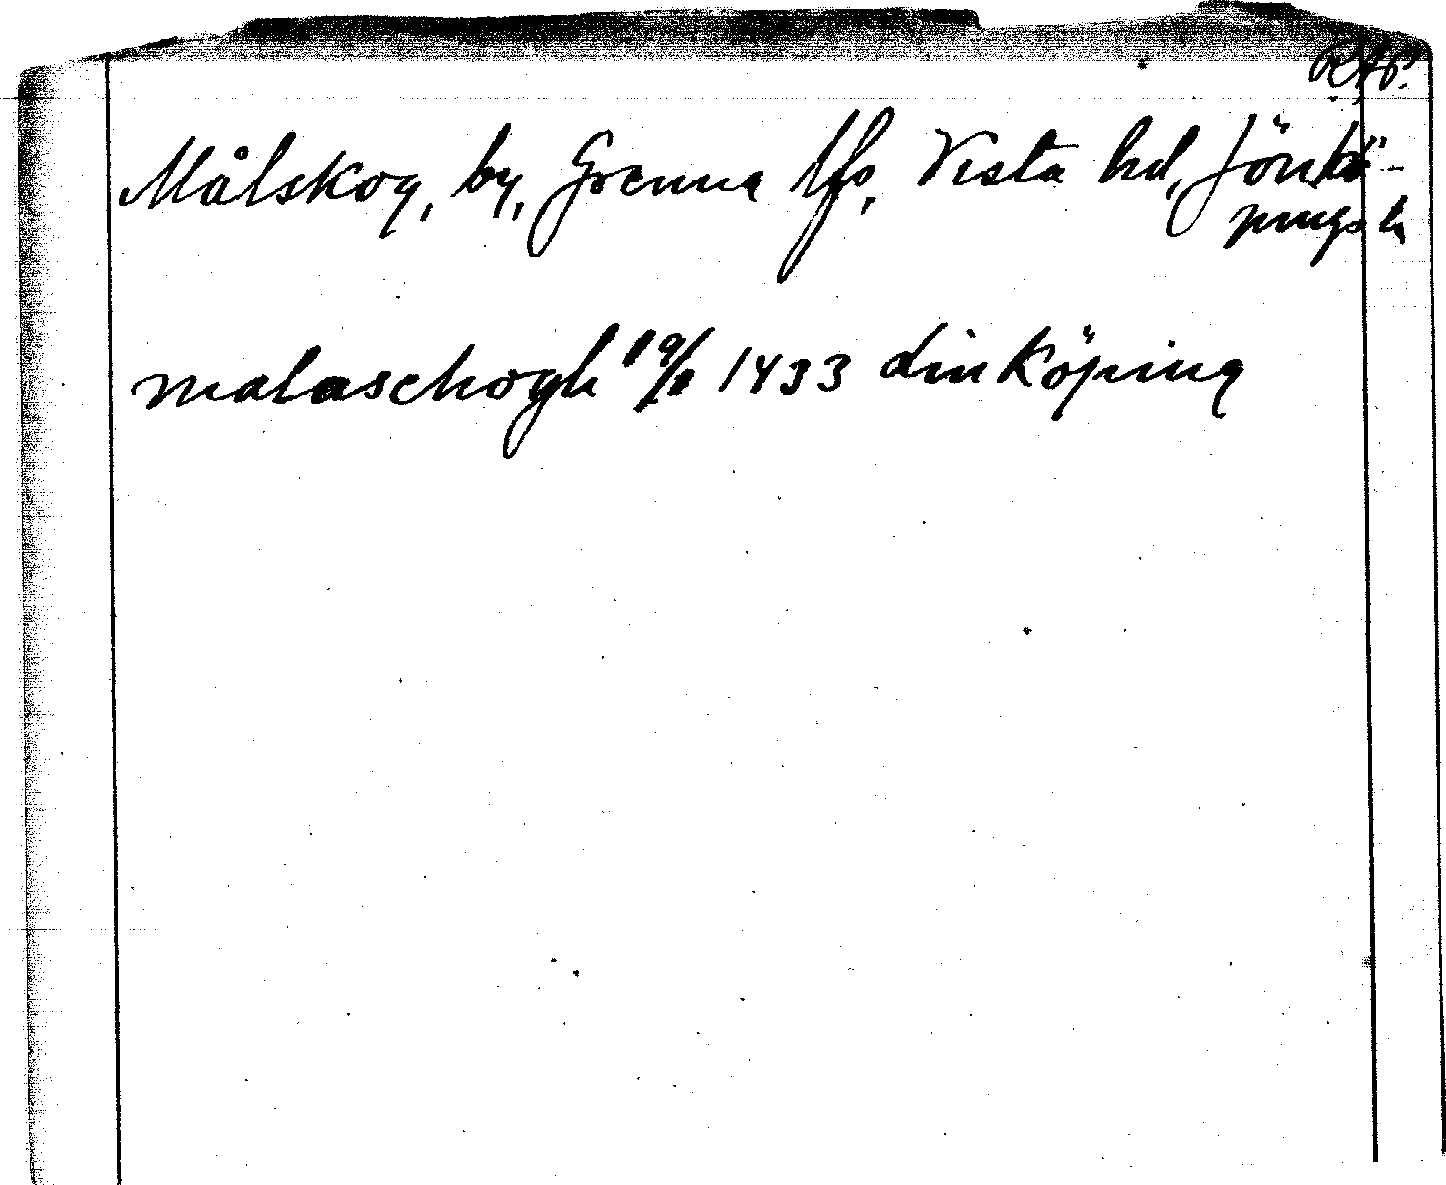 R.A.P.
Målskog, by, Grenna lfs, Vista hd, Jönkö-
pings län
malaschogh 19/8 1433 Linköping